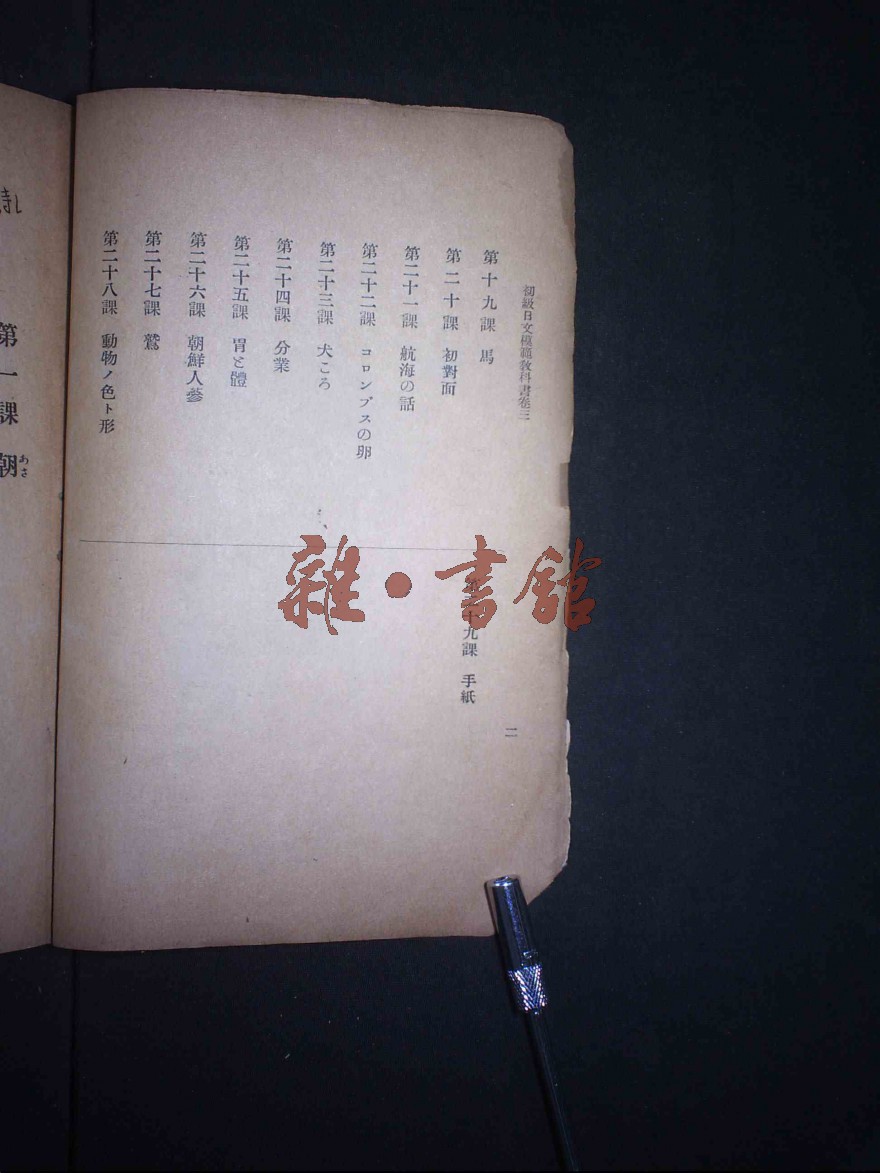 初級日文模範教科書卷三
第十九課 馬
第二十課 初對面
第二十一課 航海の話
第二十二課 コロンブスの卵
第二十三課 犬ころ
第二十四課 分業
第二十五課 胃と體
第二十六課 朝鮮人參
第二十七課 鷲
第二十八課 動物ノ色ト形
第二十九課 手紙
二
雜·書館
第一課 朝
あさ